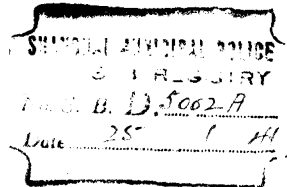 SHANGHAI MUNICIPAL POLICE
S. B. REGISTRY
No. S. B. D. 5062 A
Date 25 1 41